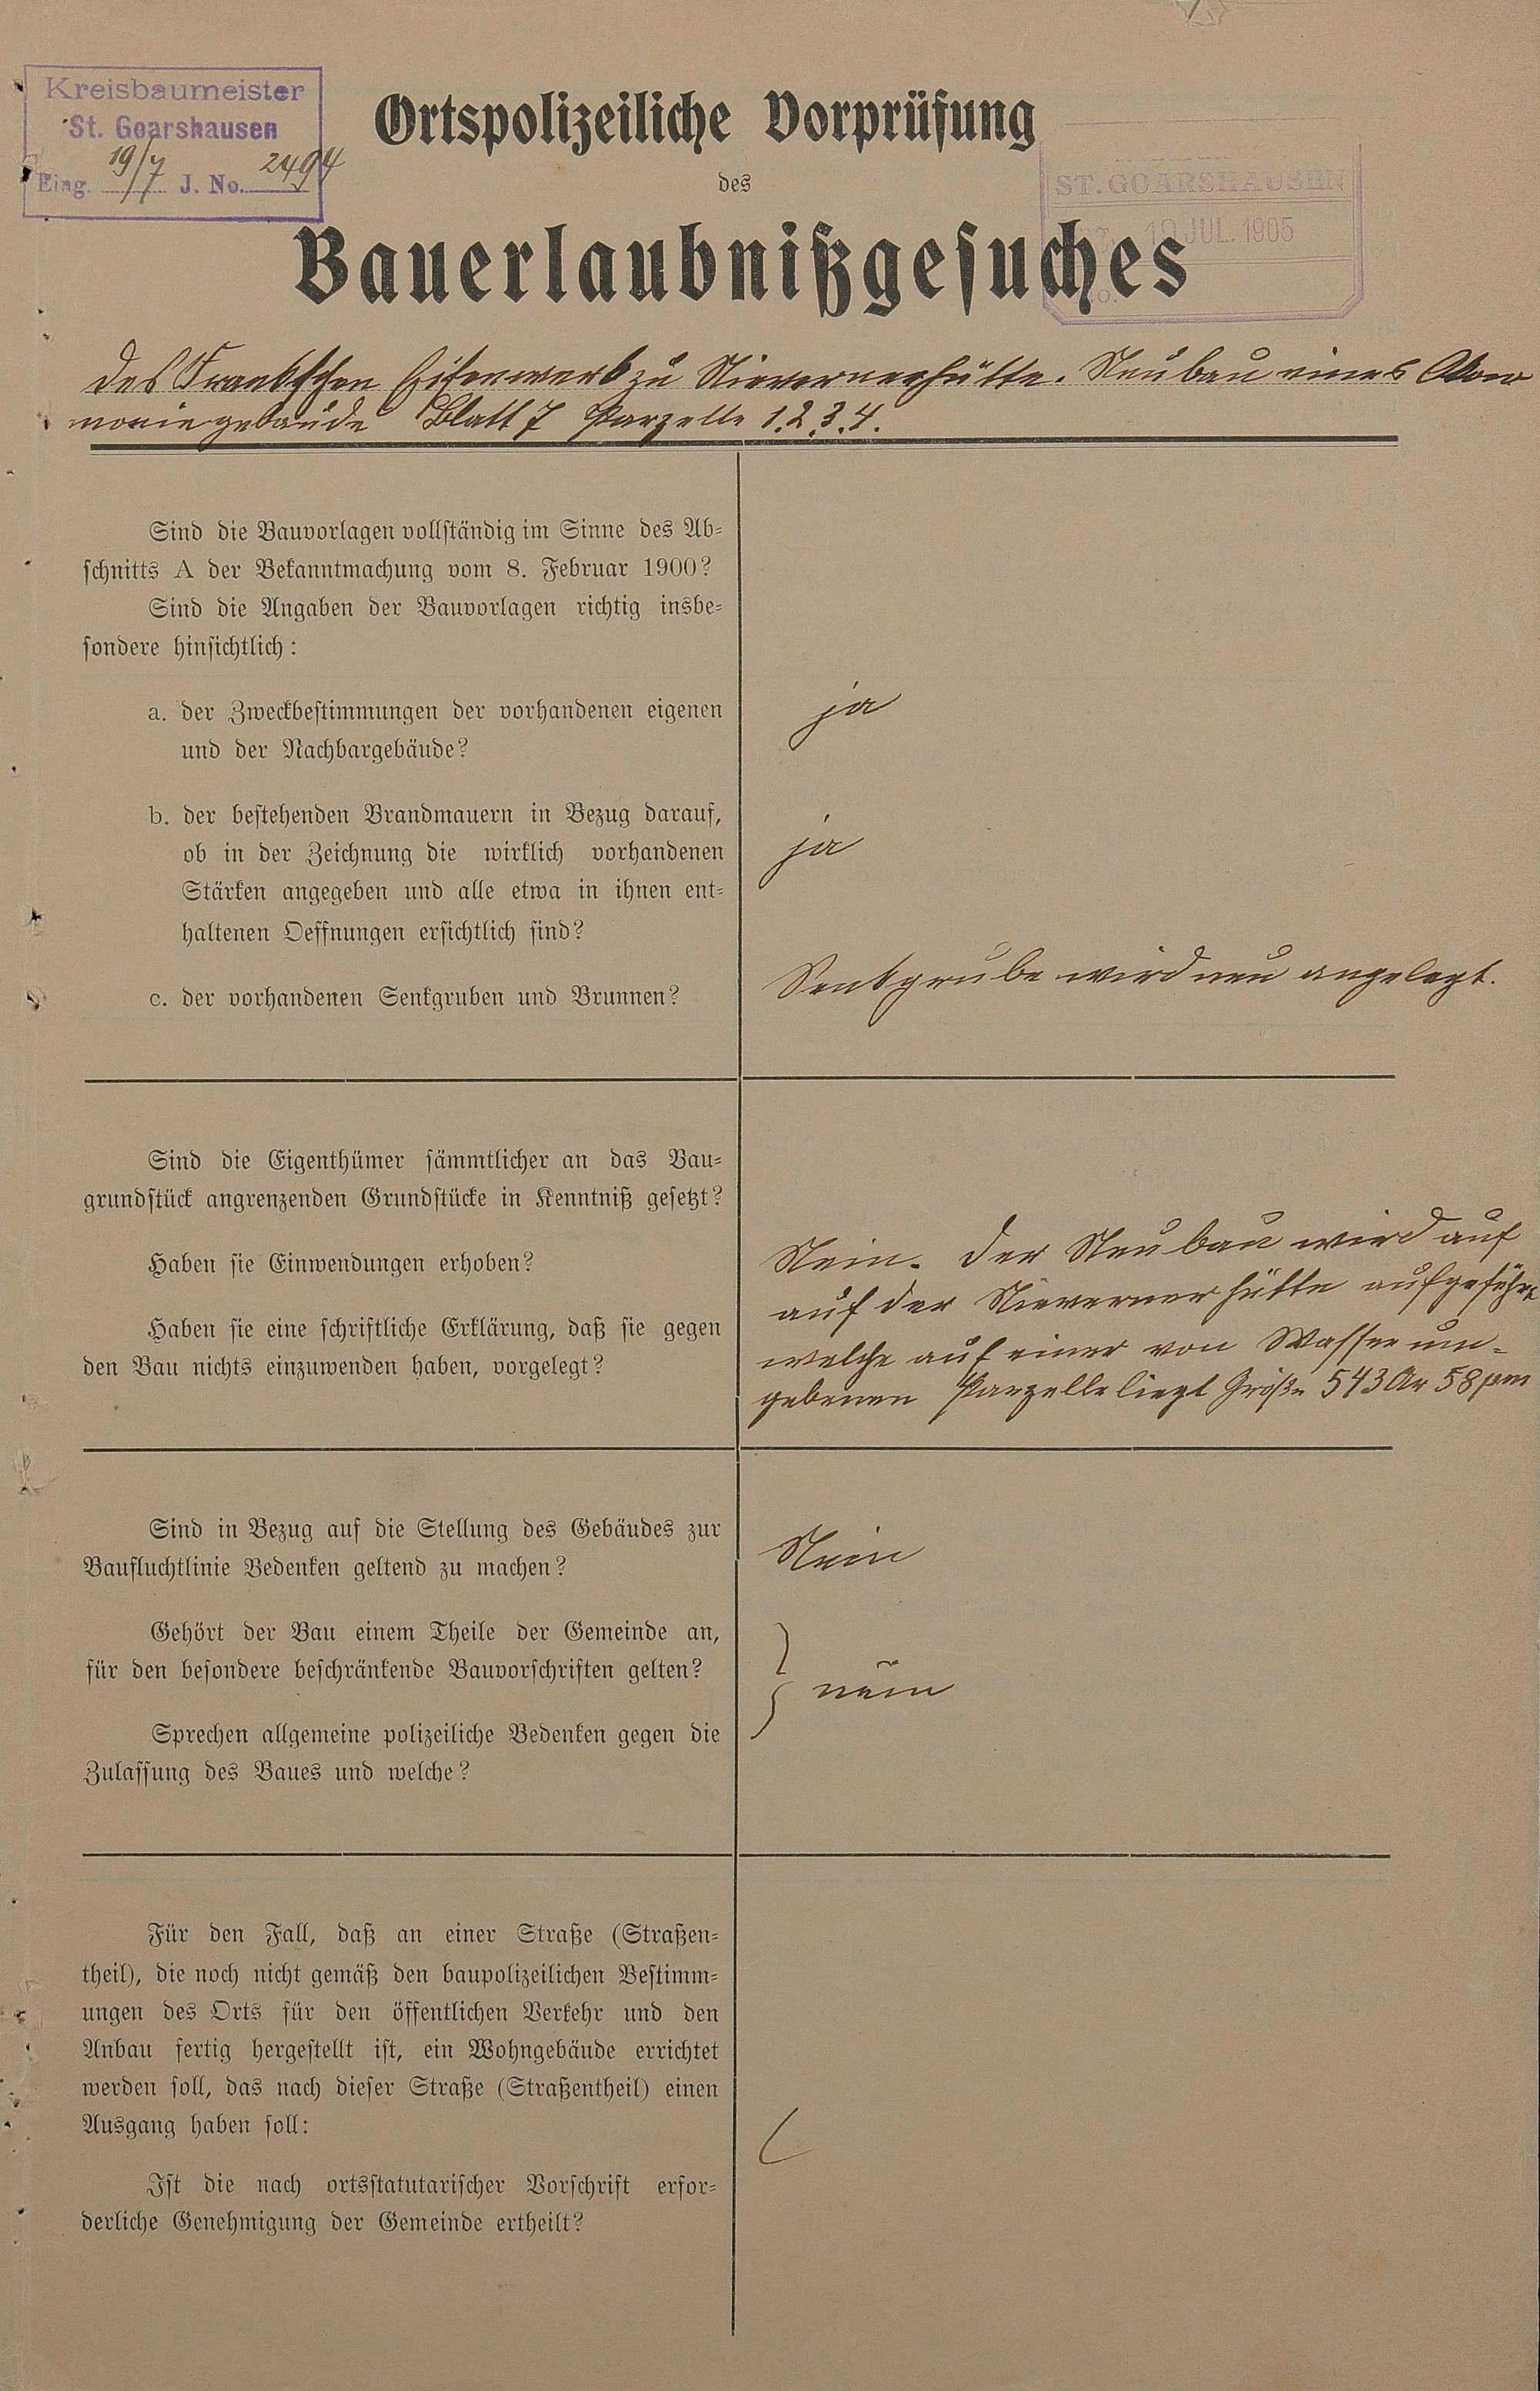 Kreisbaumeister
St. Goarshausen
Eing. 19/7 J. No. 2494
Ortspolizeiliche Vorprüfung
ST. GOARSHAUSEN
des
19 JUL. 1905
Bauerlaubnißgesuches
des Frank'schen Eisenwerk zu Nievernerhütte. Neubau eines
gebäude Blatt 7 Parzelle 1.2.3.4.
Sind die Bauvorlagen vollständig im Sinne des Ab-
schnitts A der Bekanntmachung vom 8. Februar 1900?
Sind die Angaben der Bauvorlagen richtig insbe-
sondere hinsichtlich:
a. der Zweckbestimmungen der vorhandenen eigenen
und der Nachbargebäude?
ja
b. der bestehenden Brandmauern in Bezug darauf,
ob in der Zeichnung die wirklich vorhandenen
Stärken angegeben und alle etwa in ihnen ent-
haltenen Oeffnungen ersichtlich sind?
ja
c. der vorhandenen Senkgruben und Brunnen?
Senkgrube wird neu angelegt.
Sind die Eigenthümer sämmtlicher an das Bau-
grundstück angrenzenden Grundstücke in Kenntniß gesetzt?
Haben sie Einwendungen erhoben?
Haben sie eine schriftliche Erklärung, daß sie gegen
den Bau nichts einzuwenden haben, vorgelegt?
Nein. Der Neubau wird auf
auf der Nievernerhütte aufgeführt
welche auf einer von Wasser um-
gebenen Parzelle liegt Größe 543 Ar 58 qm
Sind in Bezug auf die Stellung des Gebäudes zur
Baufluchtlinie Bedenken geltend zu machen?
Nein
Gehört der Bau einem Theile der Gemeinde an,
für den besondere beschränkende Bauvorschriften gelten?
Sprechen allgemeine polizeiliche Bedenken gegen die
Zulassung des Baues und welche?
nein
Für den Fall, daß an einer Straße (Straßen-
theil), die noch nicht gemäß den baupolizeilichen Bestimm-
ungen des Orts für den öffentlichen Verkehr und den
Anbau fertig hergestellt ist, ein Wohngebäude errichtet
werden soll, das nach dieser Straße (Straßentheil) einen
Ausgang haben soll:
Ist die nach ortsstatutarischer Vorschrift erfor-
derliche Genehmigung der Gemeinde ertheilt?